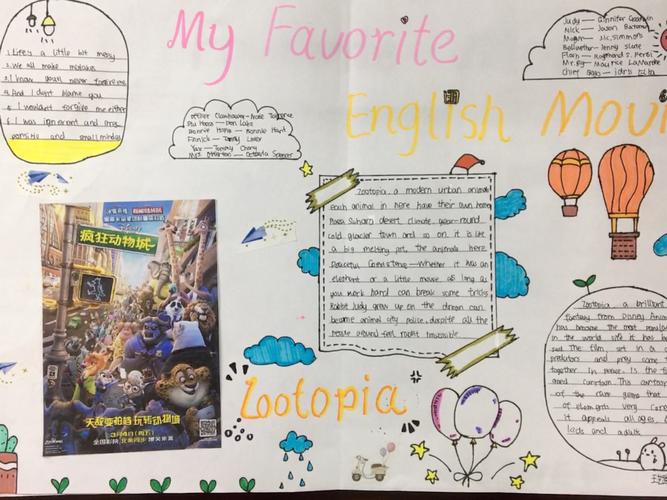 My Favorite
English Movi
1. Life's a little bit messy
2. We all make mistakes
3. I know you'll never forgive me
4. And I don't blame you
5. I wouldn't forgive me either
6. I was ignorant and
and small minded
Officer Clawhauser—Nate Torrence
Don Lake
Bonnie Hopps — Bonnie Hunt
Finnick — Tommy Lister
Yax — Tommy Chong
Mrs. Otterton — Octavia Spencer
Judy — Ginnifer Goodwin
Nick — Jason Bateman
J.K. Simmons
Bellwether — Jenny Slate
Flash — Raymond S. Persi
Mr. Big — Maurice LaMarche
Chief Bogo — Idris Elba
疯狂动物城
天敌变拍档 玩转动物城
3月4日
Zootopia
Zootopia a modern urban animal
each animal in here have their own home
Sahara desert climate year-round
cold glacier town and so on, it is like
a big melting pot, the animals here
Peaceful Coexistence—Whether it is an
elephant or a little mouse as long as
you work hard can break some tricks
Rabbit Judy grew up on the dream can
became animal city police, despite all the
people around feel rabbit impossible
Zootopia a brilliant
fantasy from Disney Anima
has become the most popular
in the world site it has be
said. The film, set in a
predators and prey come
together in peace. Is the
and cartoon. This cartoon
of the rare gems that
of elements very
it appeals all ages,
kids and adults